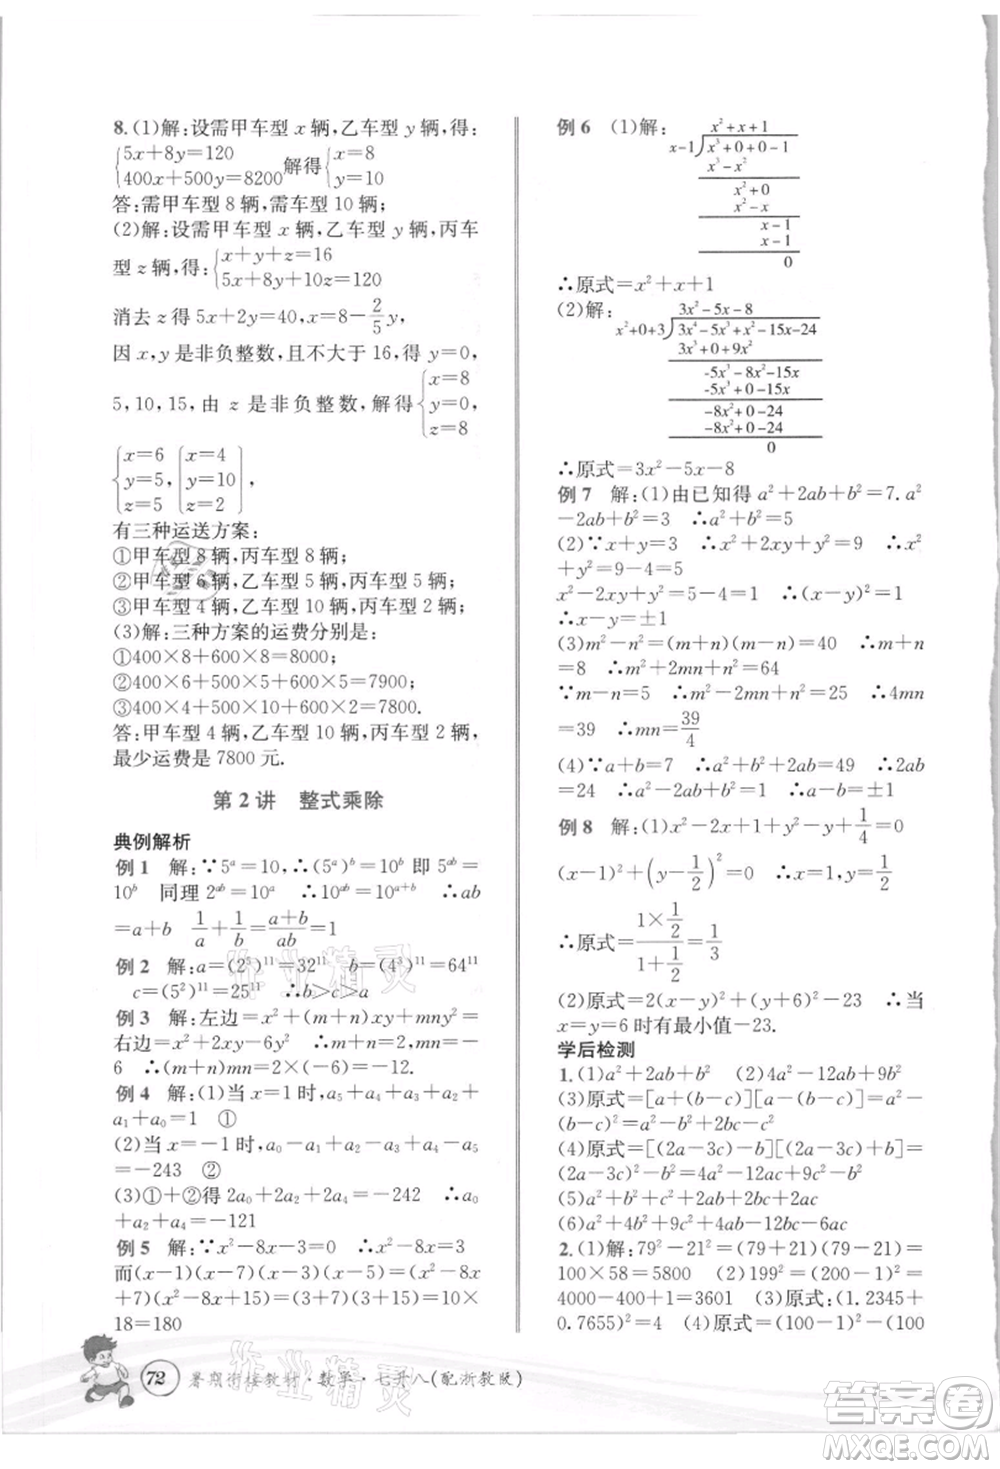 8.(1)解:设需甲车型 x 辆,乙车型 y 辆,得:
{5x+8y=120 400x+500y=8200 解得{x=8 y=10
答:需甲车型 8 辆,需车型 10 辆;
(2)解:设需甲车型 x 辆,乙车型 y 辆,丙车
型 z 辆,得:{x+y+z=16 5x+8y+10z=120
消去 z 得 5x+2y=40,x=8-2/5 y,
因 x,y 是非负整数,且不大于 16,得 y=0,
5,10,15,由 z 是非负整数,解得{x=8 y=0, z=8
{x=6 y=5, z=5 {x=4 y=10, z=2
有三种运送方案:
①甲车型 8 辆,丙车型 8 辆;
②甲车型 6 辆,乙车型 5 辆,丙车型 5 辆;
③甲车型 4 辆,乙车型 10 辆,丙车型 2 辆;
(3)解:三种方案的运费分别是:
①400×8+600×8=8000;
②400×6+500×5+600×5=7900;
③400×4+500×10+600×2=7800.
答:甲车型 4 辆,乙车型 10 辆,丙车型 2 辆,
最少运费是 7800 元.
第 2 讲 整式乘除
典例解析
例 1 解:∵5ᵃ=10,∴(5ᵃ)ᵇ=10ᵇ 即 5ᵃᵇ=
10ᵇ 同理 2ᵃᵇ=10ᵃ ∴10ᵃᵇ=10ᵃ⁺ᵇ ∴ab
=a+b 1/a+1/b=(a+b)/ab=1
例 2 解:a=(2⁵)¹¹=32¹¹ b=(4³)¹¹=64¹¹
c=(5²)¹¹=25¹¹ ∴b>a>c
例 3 解:左边=x²+(m+n)xy+mny²=
右边=x²+2xy-6y² ∴m+n=2,mn=-
6 ∴(m+n)mn=2×(-6)=-12.
例 4 解:(1)当 x=1 时,a₅+a₄+a₃+a₂+
a₁+a₀=1 ①
(2)当 x=-1 时,a₀-a₁+a₂-a₃+a₄-a₅
=-243 ②
(3)①+②得 2a₀+2a₂+2a₄=-242 ∴a₀
+a₂+a₄=-121
例 5 解:∵x²-8x-3=0 ∴x²-8x=3
而(x-1)(x-3)(x-5)(x-7)=(x²-8x+
7)(x²-8x+15)=(3+7)(3+15)=10×
18=180
72 暑期衔接教材·数学·七升八(配浙教版)
例 6 (1)解: x²+x+1
x-1 x³+0+0-1
x³-x²
x²+0
x²-x
x-1
x-1
0
∴原式=x²+x+1
(2)解: 3x²-5x-8
x²+0+3 3x⁴-5x³+x²-15x-24
3x⁴+0+9x²
-5x³-8x²-15x
-5x³+0-15x
-8x²+0-24
-8x²+0-24
0
∴原式=3x²-5x-8
例 7 解:(1)由已知得 a²+2ab+b²=7.a²
-2ab+b²=3 ∴a²+b²=5
(2)∵x+y=3 ∴x²+2xy+y²=9 ∴x²
+y²=9-4=5
x²-2xy+y²=5-4=1 ∴(x-y)²=1
∴x-y=±1
(3)m²-n²=(m+n)(m-n)=40 ∴m+n
=8 ∴m²+2mn+n²=64
∵m-n=5 ∴m²-2mn+n²=25 ∴4mn
=39 ∴mn=39/4
(4)∵a+b=7 ∴a²+b²+2ab=49 ∴a²
+b²=25 ∴a²+b²-2ab=1 ∴a-b=±1
例 8 解:(1)x²-2x+1+y²-y+1/4=0
(x-1)²+(y-1/2)²=0 ∴x=1,y=1/2
∴原式=(1×1/2)/(1+1/2)=1/3
(2)原式=2(x-y)²+(y-6)²-23 ∴当
x=y=6 时有最小值-23.
学后检测
1.(1)a²+2ab+b² (2)4a²-12ab+9b²
(3)原式=[a+(b-c)][a-(b-c)]=a²-
(b-c)²=a²-b²+2bc-c²
(4)原式=[(2a-3c)-b][(2a-3c)+b]=
(2a-3c)²-b²=4a²-12ac+9c²-b²
(5)a²+4b²+c²-4ab-2ac+4bc
(6)x²-4y²+12yz-9z²
2.(1)解:79²-21²=(79+21)(79-21)=
100×58=5800 (2)199²=(200-1)²=
4000-400+1=3601 (3)原式:(1.2345+
0.7655)²=4 (4)原式=(100-1)²-(100
作业精灵
作业精灵
答案圈
MXQE.COM